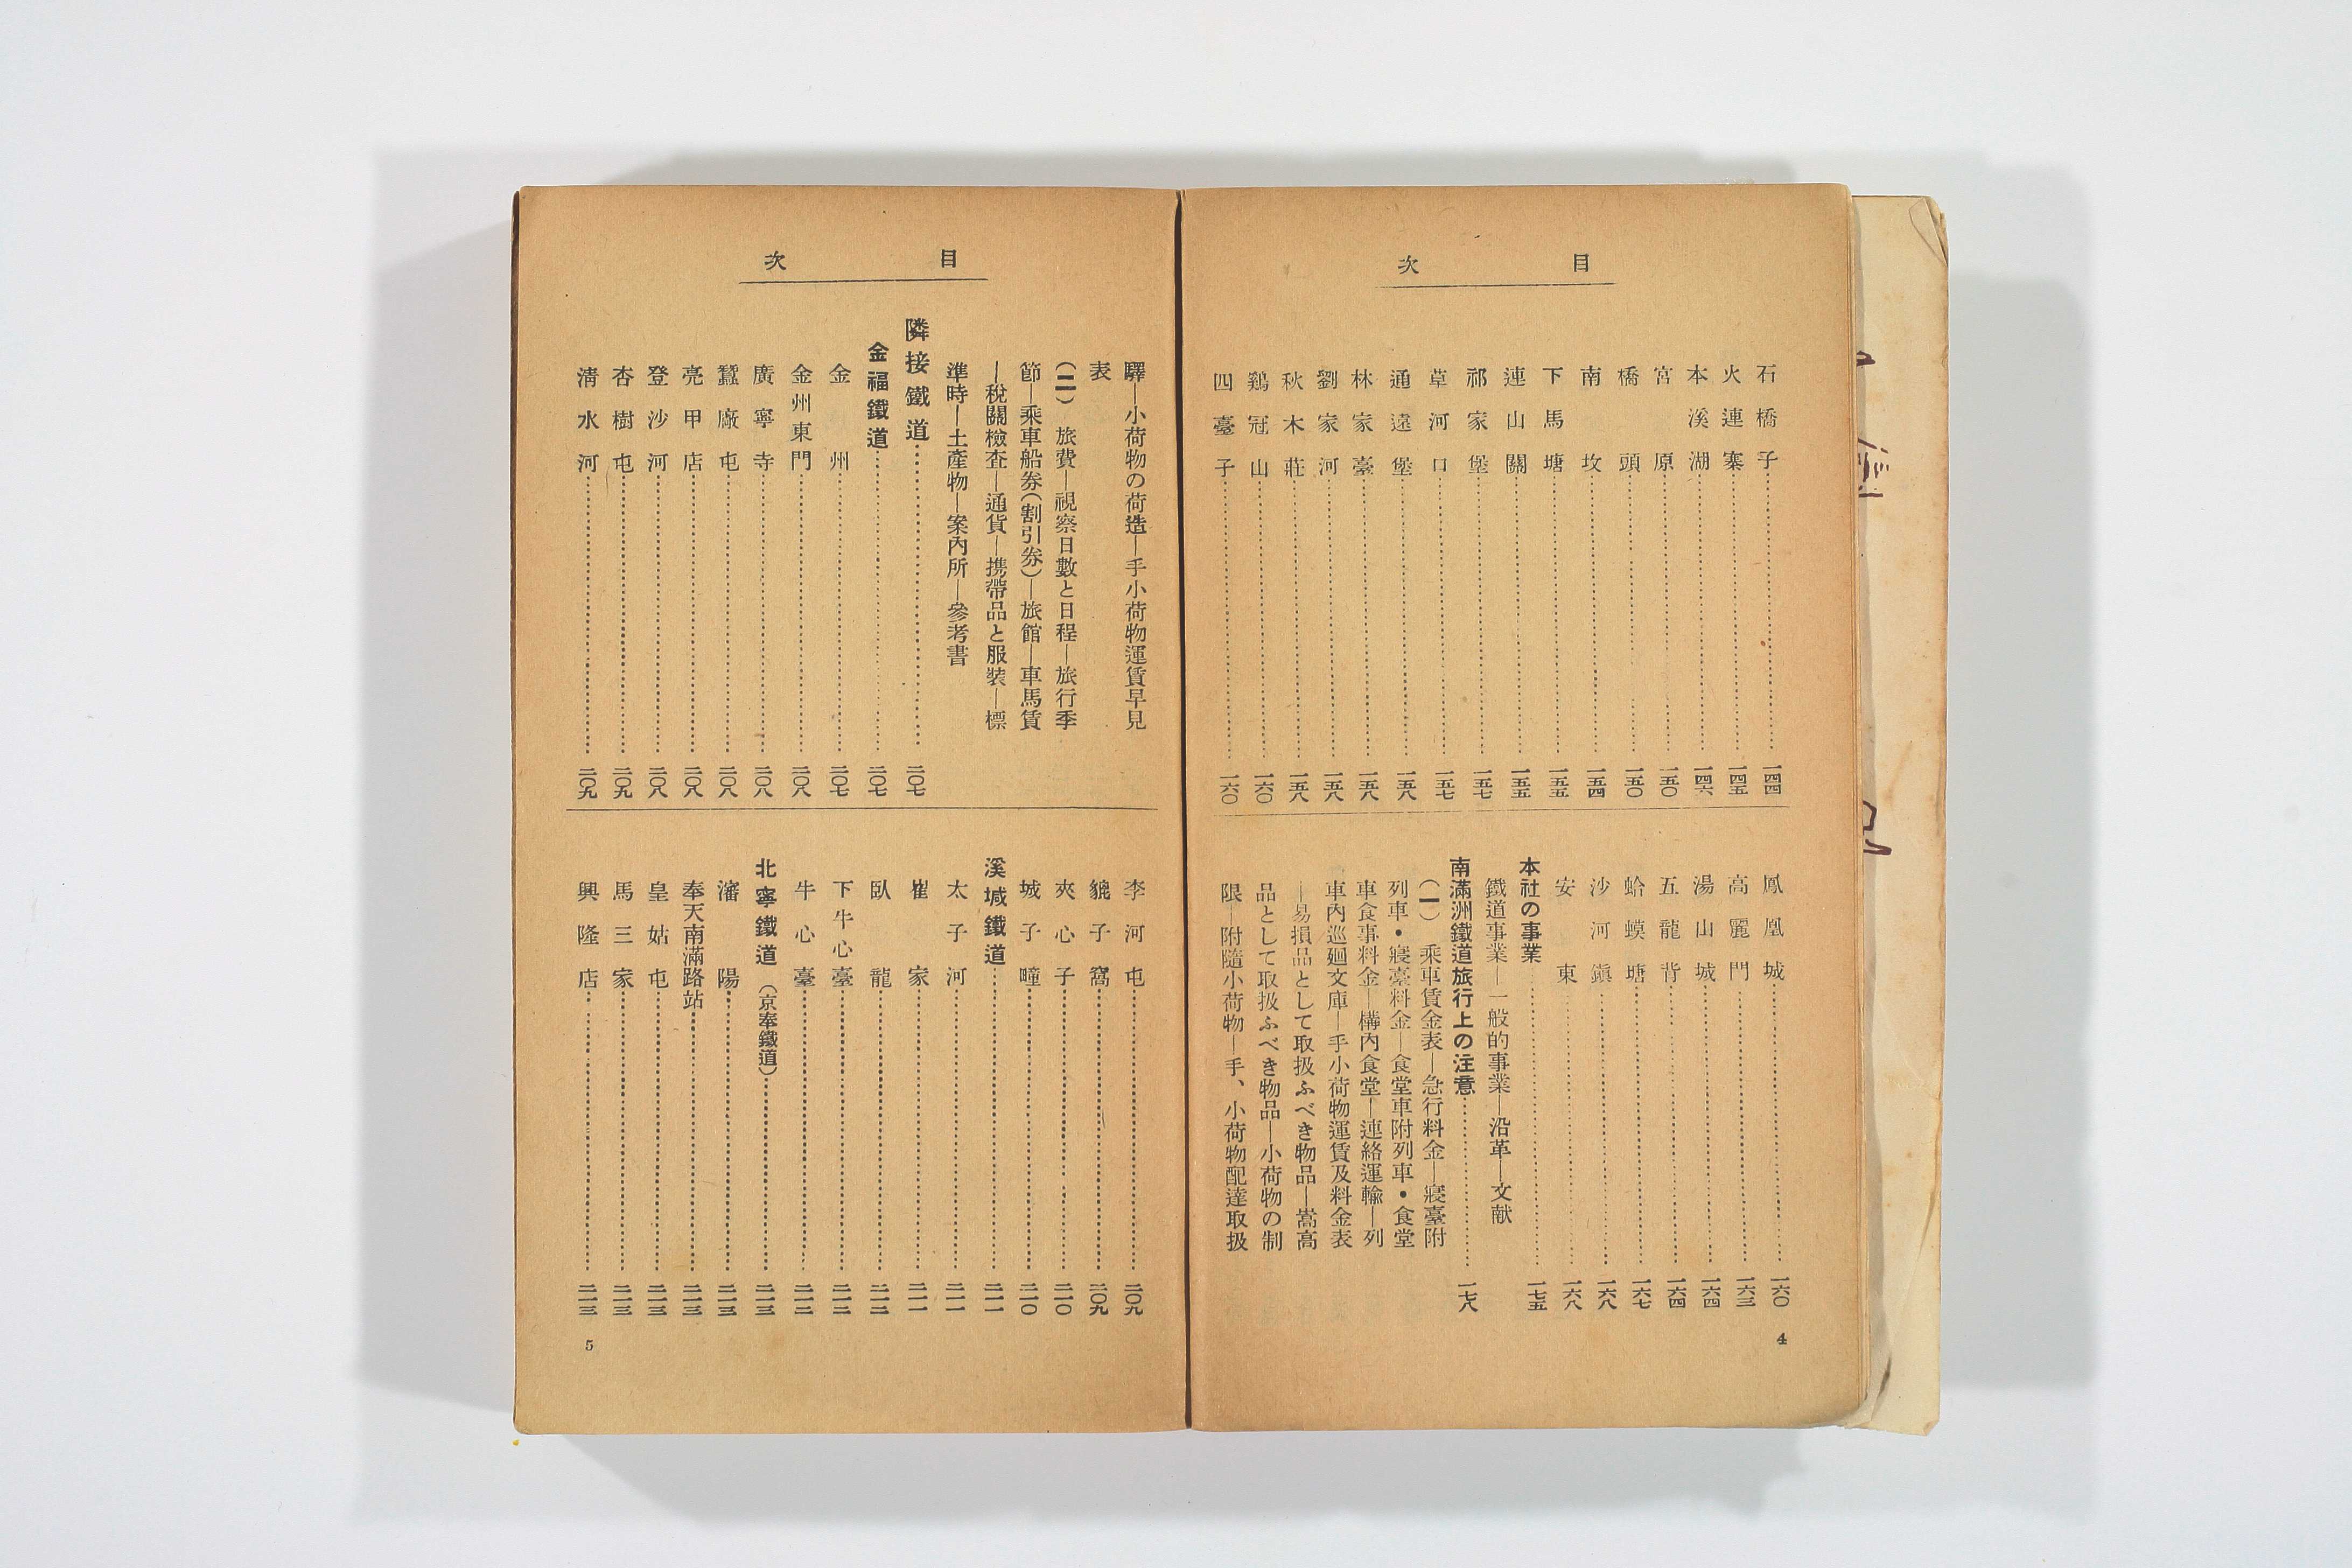 目次
石橋子 一四四
火連寨 一四五
本溪湖 一四六
宮原 一五〇
橋頭 一五〇
南坟 一五四
下馬塘 一五五
連山關 一五五
祁家堡 一五七
草河口 一五七
通遠堡 一五八
林家臺 一五八
劉家河 一五八
秋木莊 一五八
鷄冠山 一六〇
四臺子 一六〇
鳳凰城 一六〇
高麗門 一六三
湯山城 一六四
五龍背 一六四
蛤蟆塘 一六七
沙河鎭 一六八
安東 一六八
本社の事業 一七五
鐵道事業―一般的事業―沿革―文献
南滿洲鐵道旅行上の注意 一七八
(一) 乘車賃金表―急行料金―寢臺附
列車・寢臺料金―食堂車附列車・食堂
車食事料金―構内食堂―連絡運輸―列
車內巡廻文庫―手小荷物運賃及料金表
―易損品として取扱ふべき物品―嵩高
品として取扱ふべき物品―小荷物の制
限―附隨小荷物―手、小荷物配達取扱
4
目次
驛―小荷物の荷造―手小荷物運賃早見
表
(二) 旅費―視察日數と日程―旅行季
節―乘車船券(割引券)―旅館―車馬賃
―稅關檢査―通貨―携帶品と服裝―標
準時―土產物―案內所―參考書
隣接鐵道 二〇七
金福鐵道 二〇七
金州 二〇七
金州東門 二〇八
廣寧寺 二〇八
蠶廠屯 二〇八
亮甲店 二〇八
登沙河 二〇八
杏樹屯 二〇九
淸水河 二〇九
李河屯 二〇九
貔子窩 二〇九
夾心子 二一〇
城子疃 二一〇
溪堿鐵道 二一一
太子河 二一一
崔家 二一一
臥龍 二一二
下牛心臺 二一二
牛心臺 二一二
北寧鐵道(京奉鐵道) 二一三
瀋陽 二一三
奉天南滿路站 二一三
皇姑屯 二一三
馬三家 二一三
興隆店 二一三
5